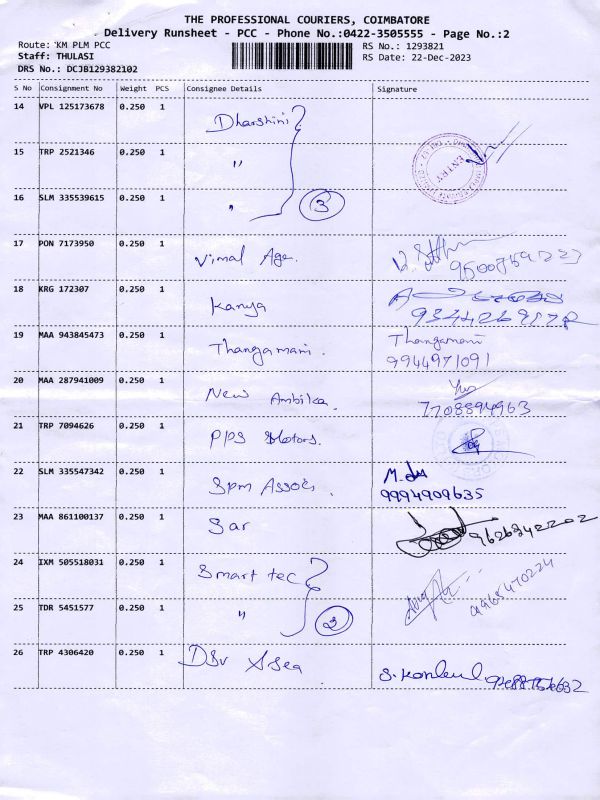 THE PROFESSIONAL COURIERS, COIMBATORE
Delivery Runsheet - PCC - Phone No.:0422-3505555 - Page No.:2
Route: KM PLM PCC RS No.: 1293821
Staff: THULASI RS Date: 22-Dec-2023
DRS No.: DCJB129382102
S No Consignment No Weight PCS Consignee Details Signature
14 VPL 125173678 0.250 1 Dharshini
15 TRP 2521346 0.250 1 " ENTRY
16 SLM 335539615 0.250 1 " 3
17 PON 7173950 0.250 1 Vimal Age.
18 KRG 172307 0.250 1 Kanya
19 MAA 943845473 0.250 1 Thangamani. Thangamani
9944971091
20 MAA 287941009 0.250 1 New Ambika.
7708894963
21 TRP 7094626 0.250 1 PPS Motors.
22 SLM 335547342 0.250 1 Spm Assoc.
9994909635
23 MAA 861100137 0.250 1 Sar 9626342202
24 IXM 505518031 0.250 1 Smart tec 9965470224
25 TDR 5451577 0.250 1 " 2
26 TRP 4306420 0.250 1